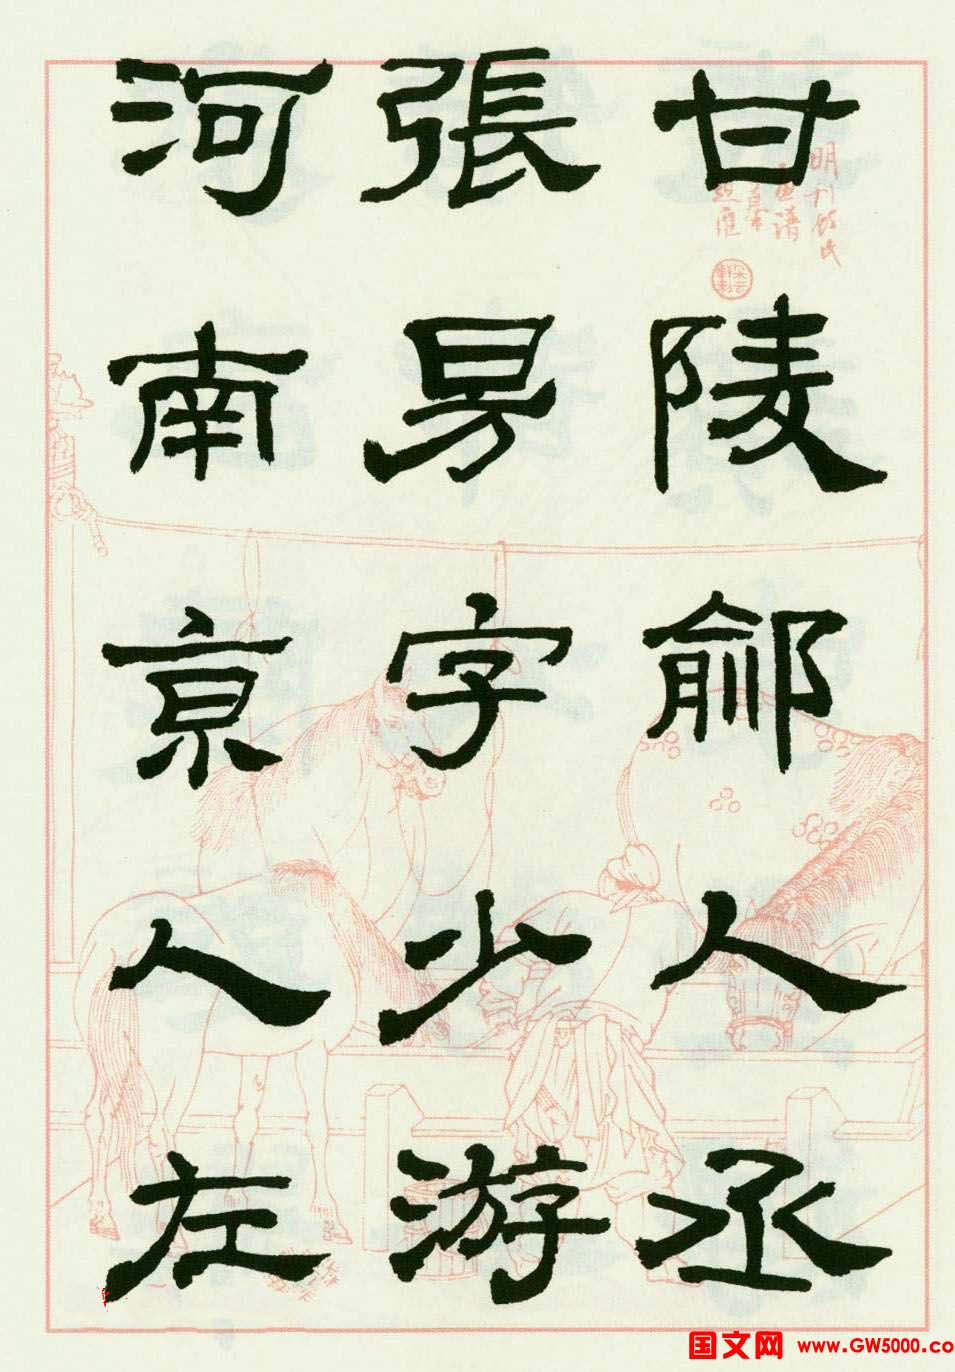 甘陵鄃人丞
張昜字少游
河南亰人左
明刊顧氏
畫譜
国文网 www.GW5000.co